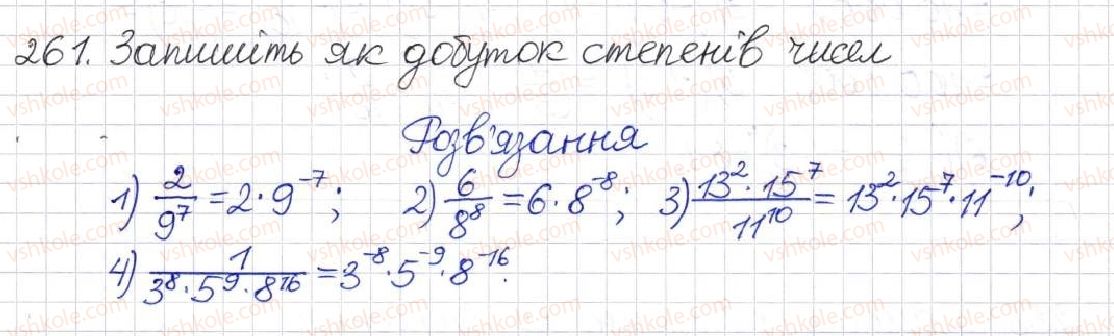 261. Запишіть як добуток степенів чисел
Розв'язання
1) 2/9⁷ = 2·9⁻⁷; 2) 6/8⁸ = 6·8⁻⁸; 3) 13²·15⁷/11¹⁰ = 13²·15⁷·11⁻¹⁰;
4) 1/3⁸·5⁹·8¹⁶ = 3⁻⁸·5⁻⁹·8⁻¹⁶.